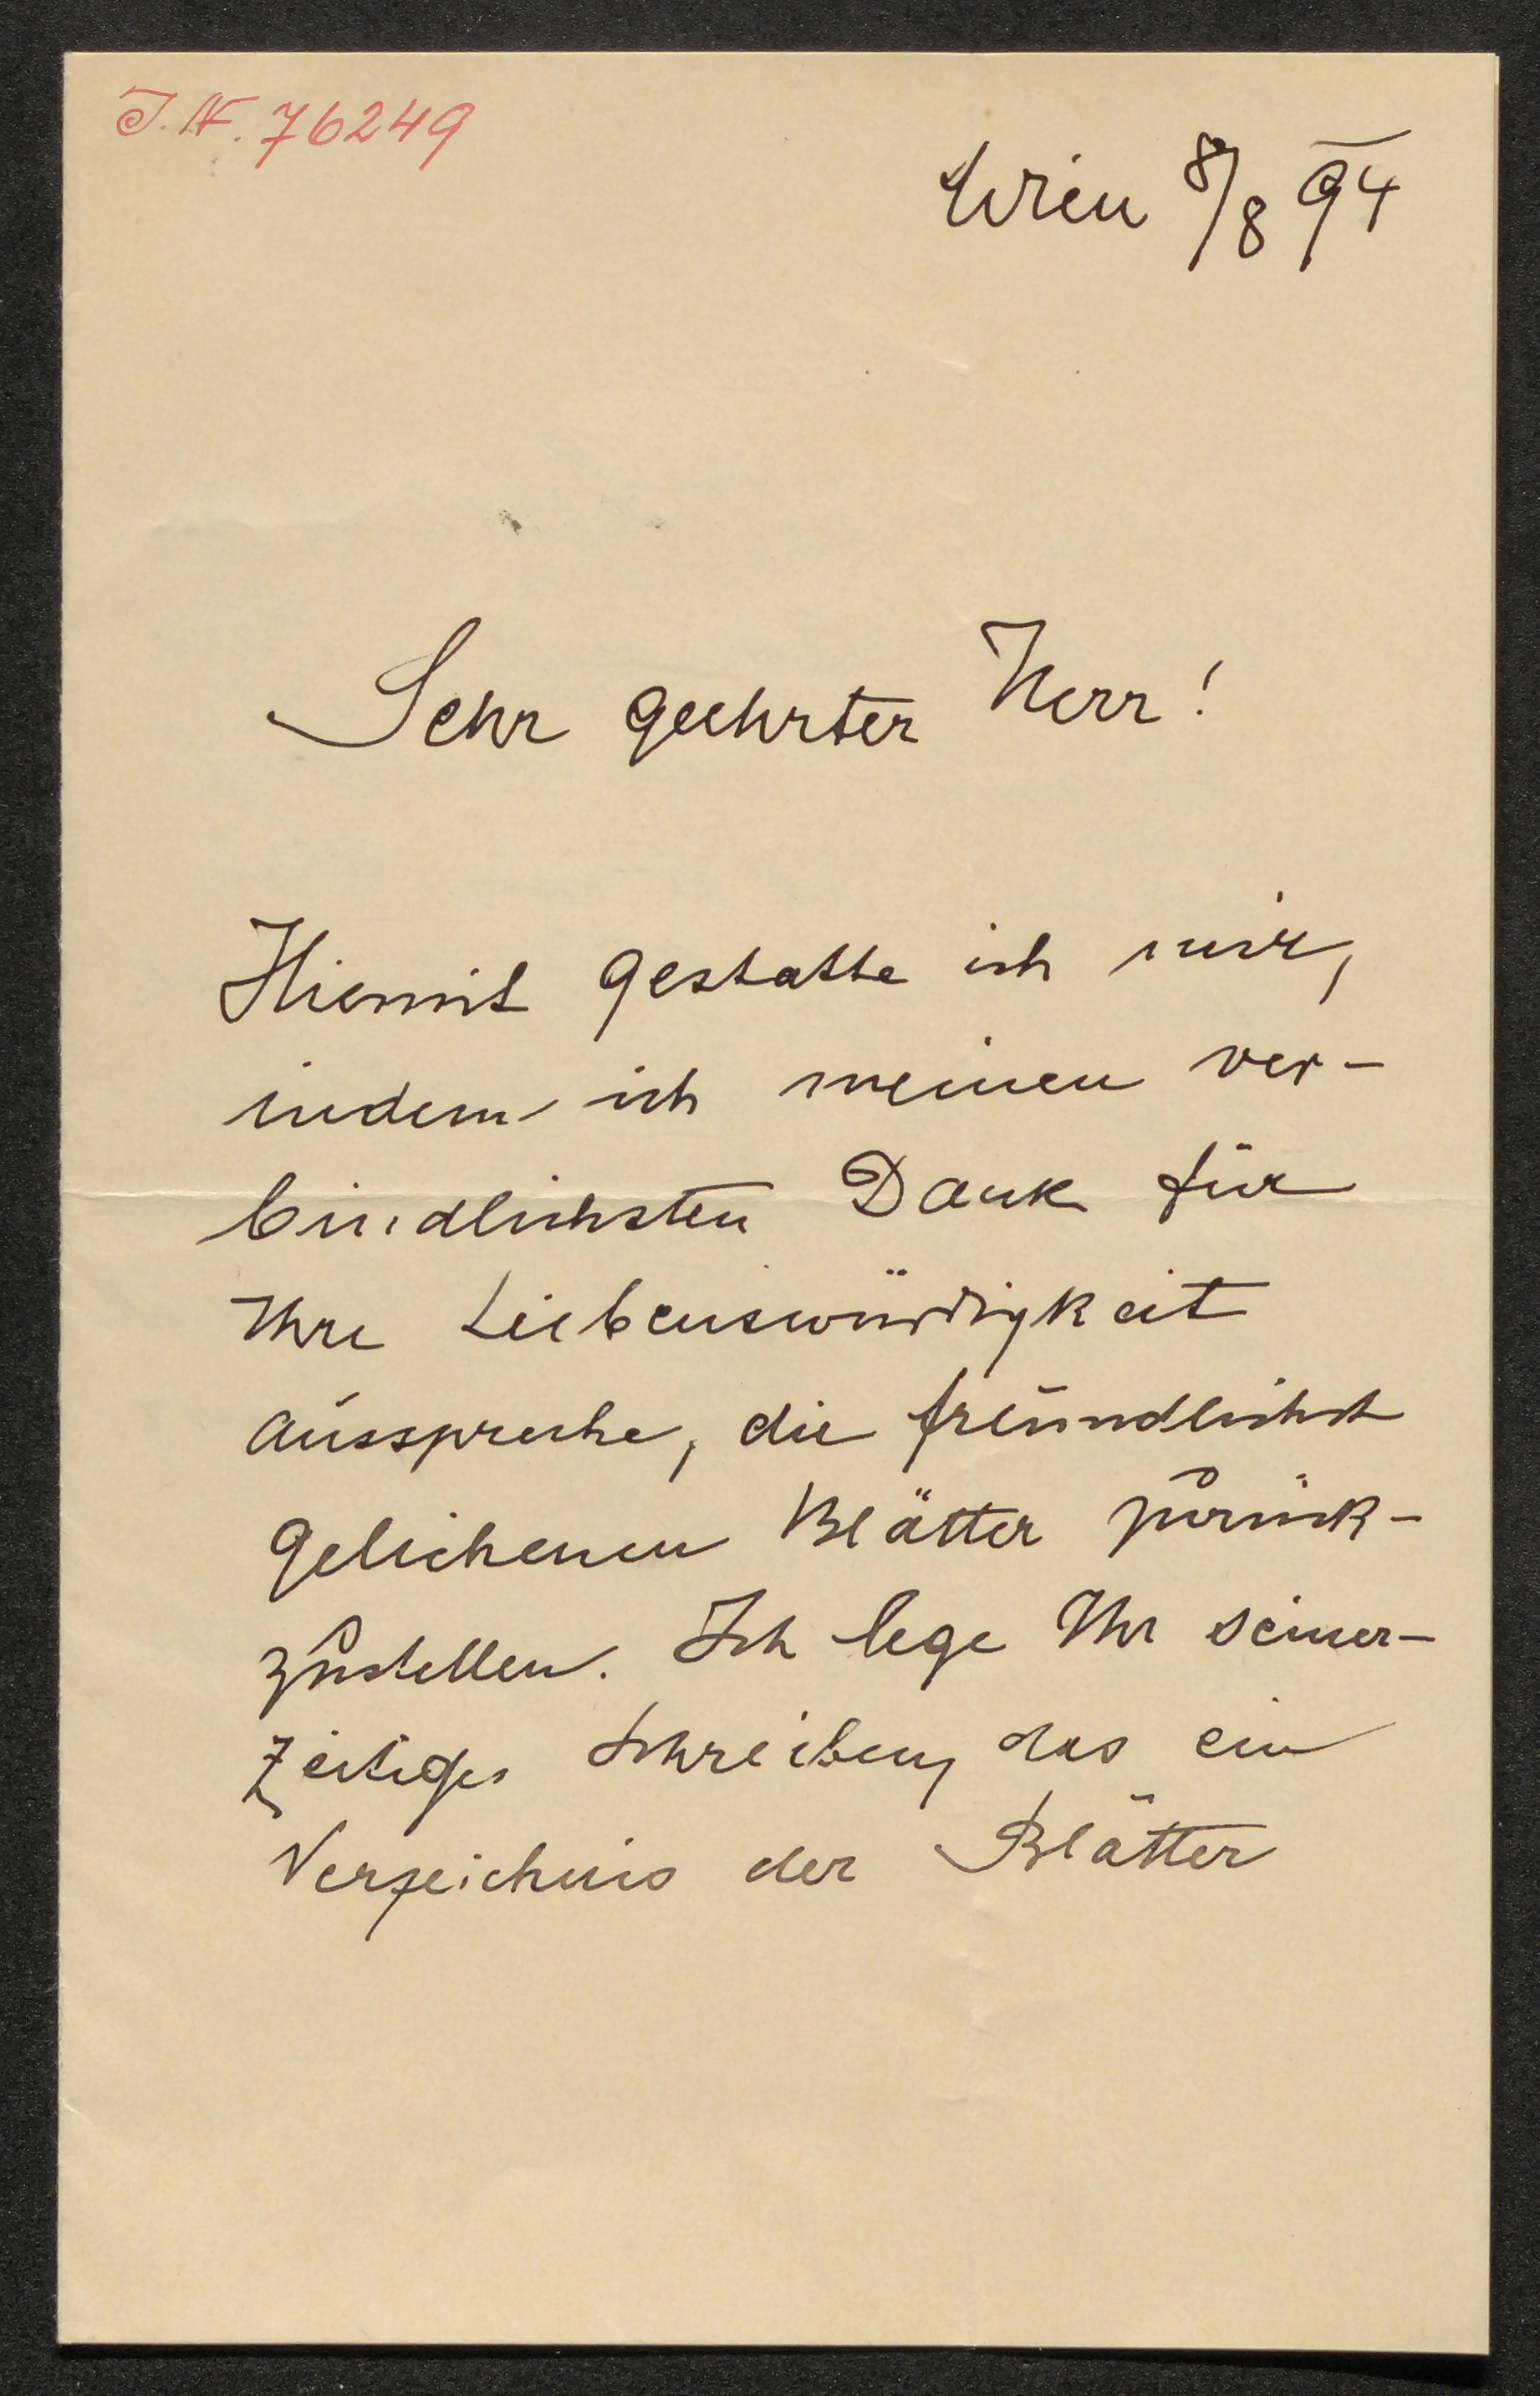 J. N. 76249
Wien 8/8 94
Sehr geehrter Herr!
Hiemit gestatte ich mir,
indem ich meinen ver-
bindlichsten Dank für
Ihre Liebenswürdigkeit
ausspreche, die freundlichst
geliehenen Blätter zurück-
zustellen. Ich lege Ihr seiner-
zeitiges Schreiben, das ein
Verzeichnis der Blätter